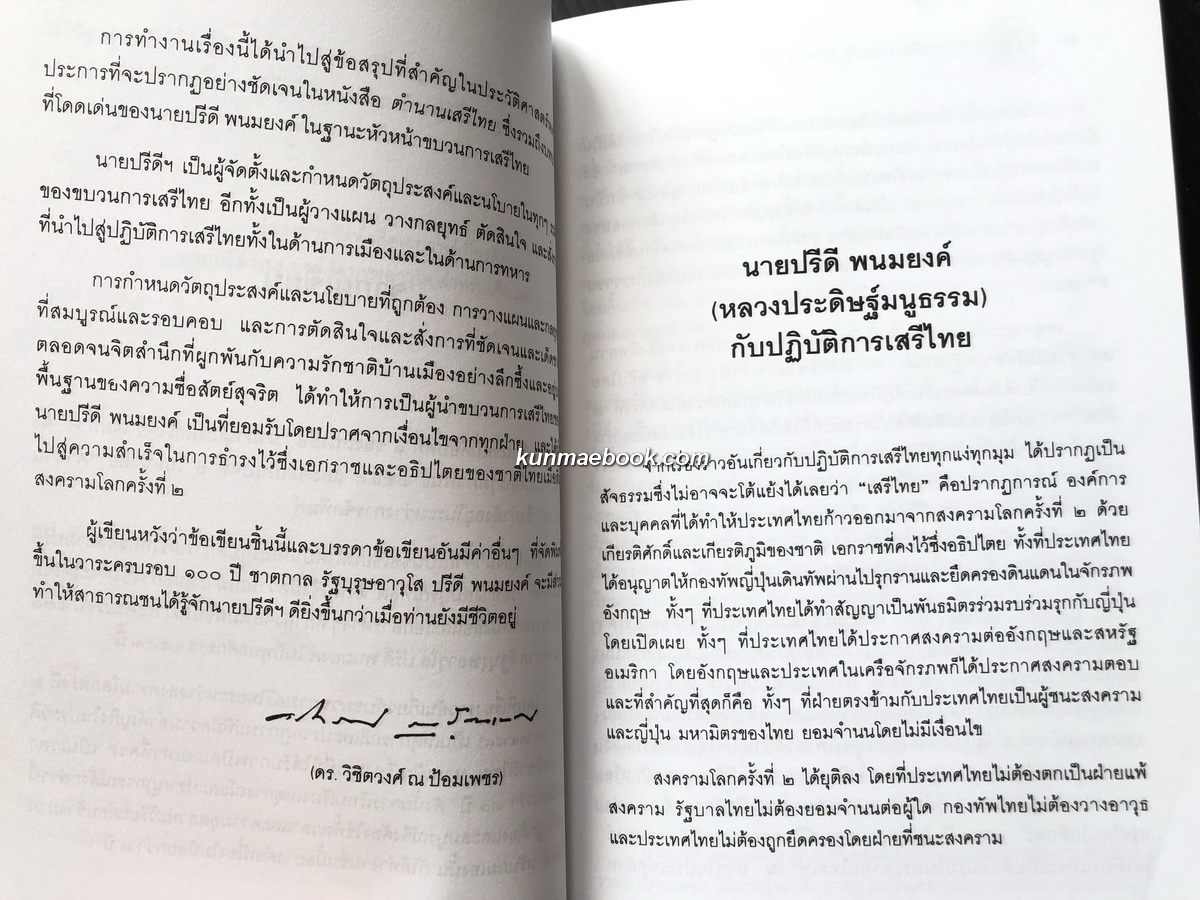 การทำงานเรื่องนี้ได้นำไปสู่ข้อสรุปที่สำคัญในประวัติศาสตร์
ประการที่จะปรากฏอย่างชัดเจนในหนังสือ ตำนานเสรีไทย ซึ่งรวมถึง
ที่โดดเด่นของนายปรีดี พนมยงค์ ในฐานะหัวหน้าขบวนการเสรีไทย
นายปรีดีฯ เป็นผู้จัดตั้งและกำหนดวัตถุประสงค์และนโยบายในทุกๆ
ของขบวนการเสรีไทย อีกทั้งเป็นผู้วางแผน วางกลยุทธ์ ตัดสินใจ และสั่ง
ที่นำไปสู่ปฏิบัติการเสรีไทยทั้งในด้านการเมืองและในด้านการทหาร
การกำหนดวัตถุประสงค์และนโยบายที่ถูกต้อง การวางแผนและ
ที่สมบูรณ์และรอบคอบ และการตัดสินใจและสั่งการที่ชัดเจนและ
ตลอดจนจิตสำนึกที่ผูกพันกับความรักชาติบ้านเมืองอย่างลึกซึ้งและ
พื้นฐานของความซื่อสัตย์สุจริต ได้ทำให้การเป็นผู้นำขบวนการเสรีไทย
นายปรีดี พนมยงค์ เป็นที่ยอมรับโดยปราศจากเงื่อนไขจากทุกฝ่าย และ
ไปสู่ความสำเร็จในการธำรงไว้ซึ่งเอกราชและอธิปไตยของชาติไทย
สงครามโลกครั้งที่ ๒
ผู้เขียนหวังว่าข้อเขียนชิ้นนี้และบรรดาข้อเขียนอันมีค่าอื่นๆ ที่จัดพิมพ์
ขึ้นในวาระครบรอบ ๑๐๐ ปี ชาตกาล รัฐบุรุษอาวุโส ปรีดี พนมยงค์ จะมี
ทำให้สาธารณชนได้รู้จักนายปรีดีฯ ดียิ่งขึ้นกว่าเมื่อท่านยังมีชีวิตอยู่
(ดร. วิชิตวงศ์ ณ ป้อมเพชร)
นายปรีดี พนมยงค์
(หลวงประดิษฐ์มนูธรรม)
กับปฏิบัติการเสรีไทย
kunmaebook.com
จากเรื่องราวอันเกี่ยวกับปฏิบัติการเสรีไทยทุกแง่ทุกมุม ได้ปรากฏเป็น
สัจธรรมซึ่งไม่อาจจะโต้แย้งได้เลยว่า “เสรีไทย” คือปรากฏการณ์ องค์การ
และบุคคลที่ได้ทำให้ประเทศไทยก้าวออกมาจากสงครามโลกครั้งที่ ๒ ด้วย
เกียรติศักดิ์และเกียรติภูมิของชาติ เอกราชที่คงไว้ซึ่งอธิปไตย ทั้งที่ประเทศไทย
ได้อนุญาตให้กองทัพญี่ปุ่นเดินทัพผ่านไปรุกรานและยึดครองดินแดนในจักรภพ
อังกฤษ ทั้งๆ ที่ประเทศไทยได้ทำสัญญาเป็นพันธมิตรร่วมรบร่วมรุกกับญี่ปุ่น
โดยเปิดเผย ทั้งๆ ที่ประเทศไทยได้ประกาศสงครามต่ออังกฤษและสหรัฐ
อเมริกา โดยอังกฤษและประเทศในเครือจักรภพก็ได้ประกาศสงครามตอบ
และที่สำคัญที่สุดก็คือ ทั้งๆ ที่ฝ่ายตรงข้ามกับประเทศไทยเป็นผู้ชนะสงคราม
และญี่ปุ่น มหามิตรของไทย ยอมจำนนโดยไม่มีเงื่อนไข
สงครามโลกครั้งที่ ๒ ได้ยุติลง โดยที่ประเทศไทยไม่ต้องตกเป็นฝ่ายแพ้
สงคราม รัฐบาลไทยไม่ต้องยอมจำนนต่อผู้ใด กองทัพไทยไม่ต้องวางอาวุธ
และประเทศไทยไม่ต้องถูกยึดครองโดยฝ่ายที่ชนะสงคราม